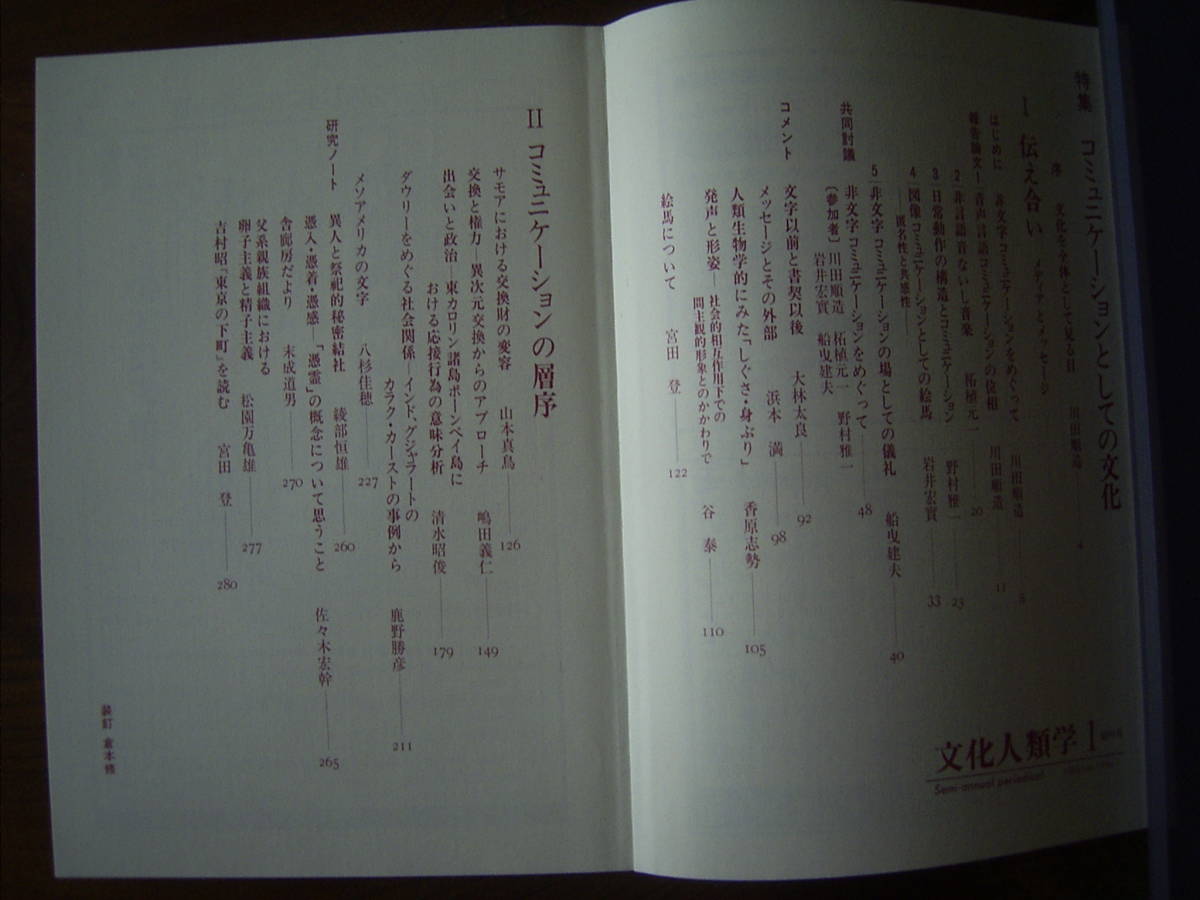 特集 コミュニケーションとしての文化
序 文化を全体として見る目 川田順造 4
I 伝え合い メディアとメッセージ
はじめに 非文字コミュニケーションをめぐって 川田順造 8
報告論文 1 音声言語コミュニケーションの位相 川田順造 11
2 非言語音ないし音楽 柘植元一 20
3 日常動作の構造とコミュニケーション 野村雅一 23
4 図像コミュニケーションとしての絵馬 岩井宏實 33
——匿名性と共感性——
5 非文字コミュニケーションの場としての儀礼 船曳建夫 40
共同討議 非文字コミュニケーションをめぐって 48
〔参加者〕川田順造 柘植元一 野村雅一
岩井宏實 船曳建夫
コメント 文字以前と書契以後 大林太良 92
メッセージとその外部 浜本 満 98
人類生物学的にみた「しぐさ・身ぶり」 香原志勢 105
発声と形姿—社会的相互作用下での
間主観的形象とのかかわりで 谷 泰 110
絵馬について 宮田 登 122
II コミュニケーションの層序
サモアにおける交換財の変容 山本真鳥 126
交換と権力—異次元交換からのアプローチ 嶋田義仁 149
出会いと政治—東カロリン諸島ポーンペイ島に
おける応接行為の意味分析 清水昭俊 179
ダウリーをめぐる社会関係—インド、グジャラートの
カラク・カーストの事例から 鹿野勝彦 211
メソアメリカの文字 八杉佳穂 227
研究ノート 異人と祭祀的秘密結社 綾部恒雄 260
憑入・憑着・憑感—「憑霊」の概念について思うこと 佐々木宏幹 265
舎廊房だより 末成道男 270
父系親族組織における
卵子主義と精子主義 松園万亀雄 277
吉村昭『東京の下町』を読む 宮田 登 280
装訂 倉本修
文化人類学 1
Semi-annual periodical